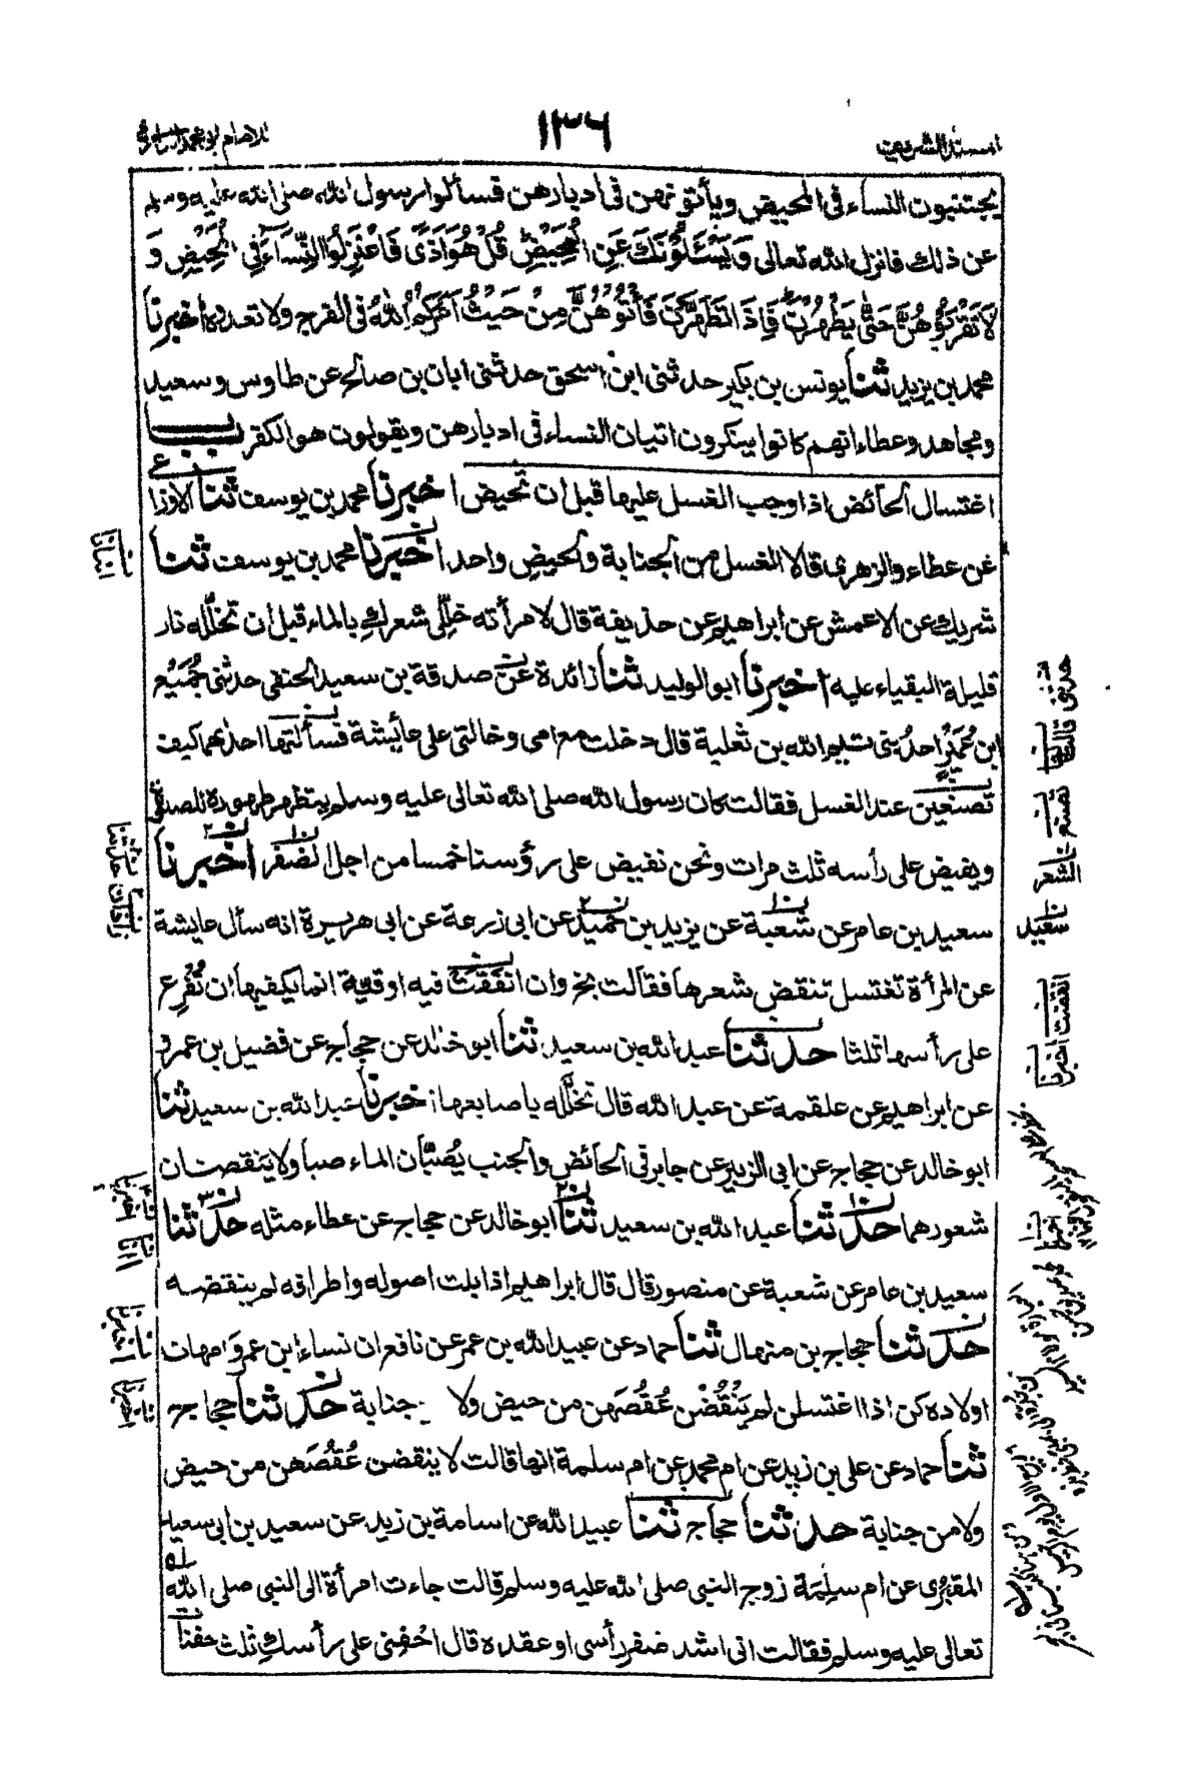 المسند الشريف
١٣٦
للامام ابو محمد الدارمي
يجتنبون النساء فى المحيض ويأتونهن فى ادبارهن فسألوا رسول الله صلى الله عليه وسلم
عن ذلك فانزل الله تعالى وَيَسْئَلُوْنَكَ عَنِ الْمَحِيْضِ قُلْ هُوَ اَذًى فَاعْتَزِلُوا النِّسَآءَ فِى الْمَحِيْضِ وَ
لَا تَقْرَبُوْهُنَّ حَتّٰى يَطْهُرْنَ فَاِذَا تَطَهَّرْنَ فَأْتُوْهُنَّ مِنْ حَيْثُ اَمَرَكُمُ اللّٰهُ فى الفرج ولا تعدوه اخبرنا
محمد بن يزيد ثنا يونس بن بكير حدثنى ابن اسحق حدثنى ابان بن صالح عن طاوس وسعيد
ومجاهد وعطاء انهم كانوا ينكرون اتيان النساء فى ادبارهن ويقولون هو الكفر باب
اغتسال الحائض اذا وجب الغسل عليها قبل ان تحيض اخبرنا محمد بن يوسف ثنا الاوزاعى
عن عطاء والزهرى قالا الغسل من الجنابة والحيض واحد اخبرنا محمد بن يوسف ثنا
شريك عن الاعمش عن ابراهيم عن حذيفة قال لامرأته خلّلى شعرك بالماء قبل ان تخلّله نار
قليلة البقياء عليه اخبرنا ابو الوليد ثنا زائدة عن صدقة بن سعيد الحنفى حدثنى جُمَيْع
ابن عُمَيْر احد بنى تيم الله بن ثعلبة قال دخلت مع امى وخالتى على عائشة فسألتها احدٰهما كيف
تصنعين عند الغسل فقالت كان رسول الله صلى الله تعالى عليه وسلم يتطهر طهوره للصلوٰة
ويفيض على رأسه ثلث مرات ونحن نفيض على رؤسنا خمسا من اجل الضفر اخبرنا
سعيد بن عامر عن شعبة عن يزيد بن حُميد عن ابى زرعة عن ابى هريرة انه سأل عايشة
عن المرأة تغتسل تنقض شعرها فقالت بخ وان انفقت فيه اوقية انما يكفيها ان تُفرِغ
على رأسها ثلثا حدثنا عبد الله بن سعيد ثنا ابو خالد عن حجاج عن فضيل بن عمرو
عن ابراهيم عن علقمة عن عبد الله قال تخلّله باصابعها اخبرنا عبد الله بن سعيد ثنا
ابو خالد عن حجاج عن ابى الزبير عن جابر فى الحائض والجنب يُصُبَّان الماء صبا ولا ينقصان
شعورهما حدثنا عبد الله بن سعيد ثنا ابو خالد عن حجاج عن عطاء مثله حدثنا
سعيد بن عامر عن شعبة عن منصور قال قال ابراهيم اذا بلت اصوله واطرافه لم ينقضه
حدثنا حجاج بن منهال ثنا حماد عن عبيد الله بن عمر عن نافع ان نساء ابن عمر وَامهات
اولاده كن اذا اغتسلن لم يَنْقُضْن عُقُصَهن من حيض ولا جنابة حدثنا حجاج
ثنا حماد عن على بن زيد عن ام محمد عن ام سلمة انها قالت لا ينقضن عُقُصَهن من حيض
ولا من جنابة حدثنا حجاج ثنا عبيد الله عن اسامة بن زيد عن سعيد بن ابى سعيد
المقبُرى عن ام سلِمَة زوج النبى صلى الله عليه وسلم قالت جاءت امرأة الى النبى صلى الله
تعالى عليه وسلم فقالت انى اشد ضفر رأسى او عقده قال احُفِنى على رأسك ثلث حفنا